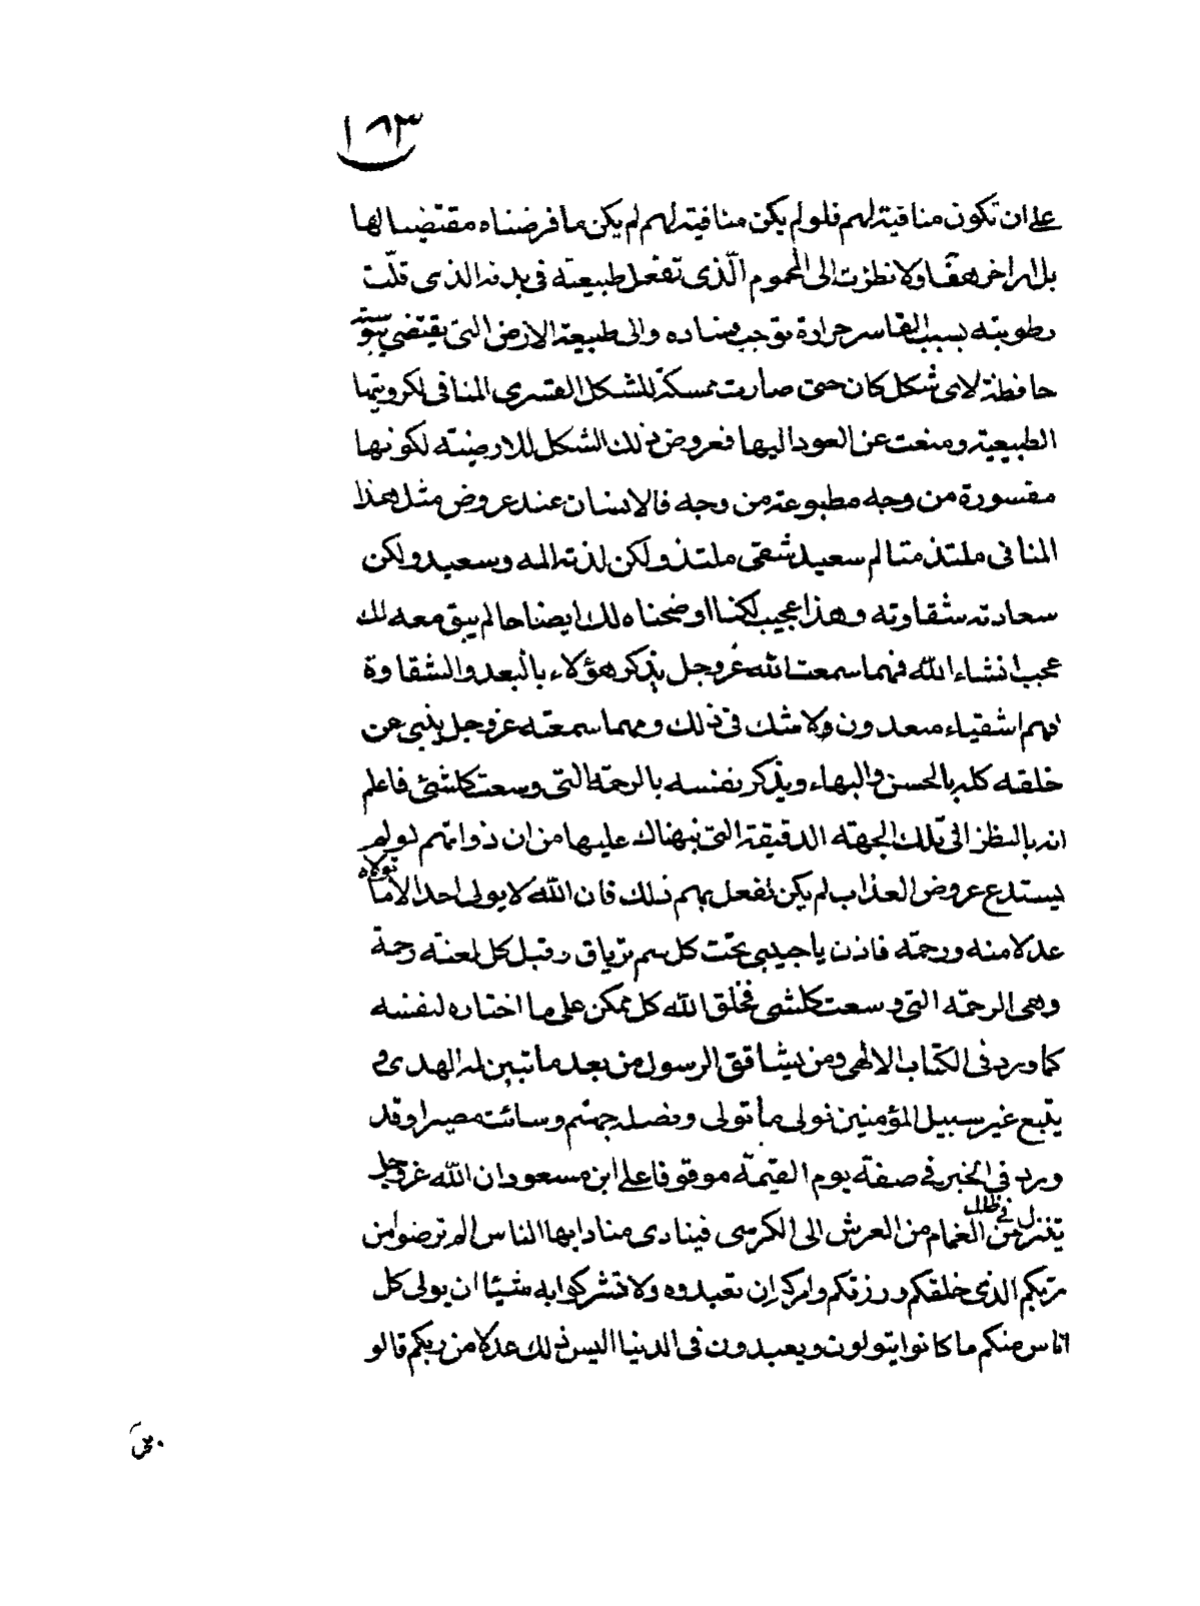 ١٨٣
على ان تكون منافية لهم فلو لم يكن منافية لهم لم يكن ما فرضناه مقتضيا لها
بل امرا اخر هف اولا نظرت الى المحموم الّذى تفعل طبيعته فى بدنه الذى قلّت
رطوبته بسبب القاسر حرارة توجب فساده والى طبيعة الارض التى يقتضى يبوسته
حافظة لاى شكل كان حتى صارت ممسكة للشكل القسرى المنافى لكرويتها
الطبيعية ومنعت عن العود اليها فعروض ذلك الشكل للارضيته لكونها
مقسورة من وجه مطبوعة من وجه فالانسان عند عروض مثل هذا
المنافى ملتذ متالم سعيد شقى ملتذ ولكن لذته المه وسعيد ولكن
سعادته شقاوته وهذا عجيب لكنا اوضحناه لك ايضاحا لم يبق معه لك
عجب انشاء الله فمهما سمعت الله عز وجل يذكر هؤلاء بالبعد والشقاوة
فهم اشقياء مبعدون ولا شك فى ذلك ومهما سمعته عز وجل ينبى عن
خلقه كله بالحسن والبهاء ويذكر نفسه بالرحمة التى وسعت كلشئ فاعلم
انه بالنظر الى تلك الجهة الدقيقة التى نبهناك عليها من ان ذواتهم لو لم
يستدع عروض العذاب لم يكن تفعل بهم ذلك فان الله لا يولى احدا الا ما تولاه
عدلا منه ورحمة فاذن يا حبيبى تحت كل سم ترياق وقبل كل لعنة رحمة
وهى الرحمة التى وسعت كلشى فخلق الله كل ممكن على ما اختاره لنفسه
كما ورد فى الكتاب الالهى ومن يشاقق الرسول من بعد ما تبين له الهدى و
يتبع غير سبيل المؤمنين نولى ما تولى ونصله جهنم وسائت مصيرا وقد
ورد فى الخبر فى صفة يوم القيمة موقوفا على ابن مسعود ان الله عز وجل
يتنزل فى ظلل من الغمام من العرش الى الكرسى فينادى مناد ايها الناس الم ترضوا من
ربكم الذى خلقكم ورزقكم وامركم ان تعبدوه ولا تشركوا به شيئا ان يولى كل
اناس منكم ما كانوا يتولون ويعبدون فى الدنيا اليس ذلك عدلا من ربكم قالو